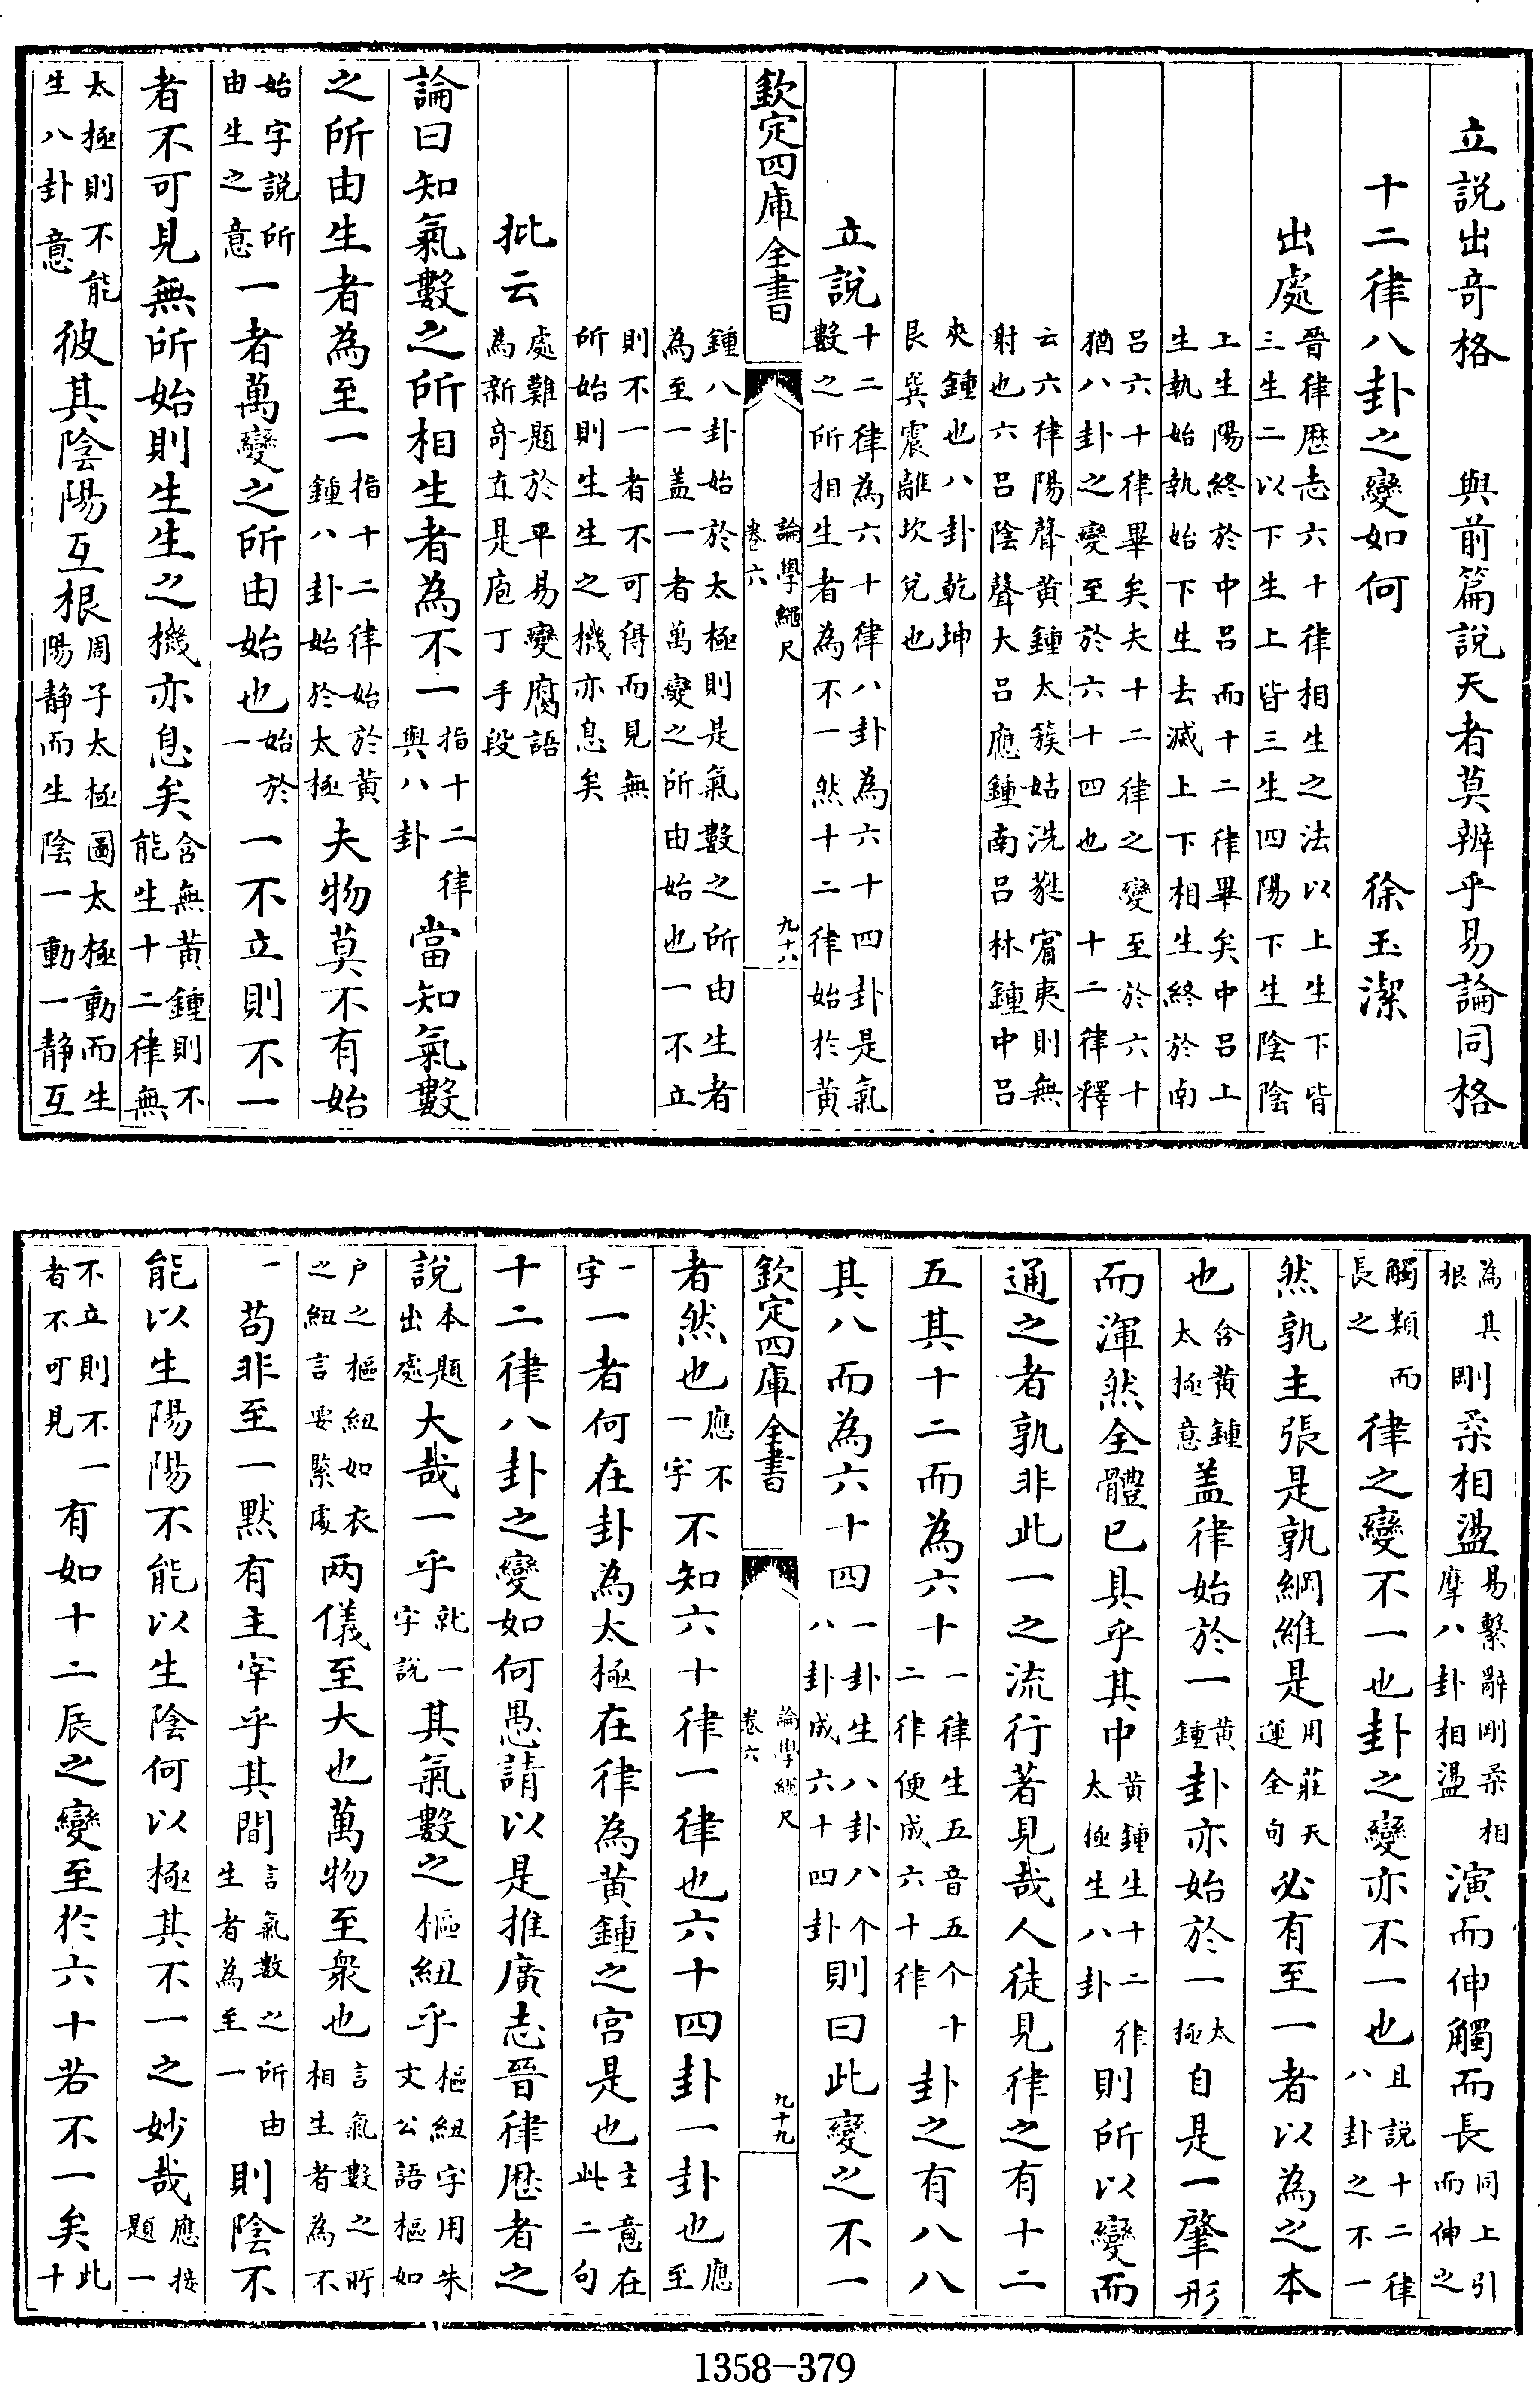 立說出奇格　與前篇說天者莫辨乎易論同格
十二律八卦之變如何　徐玉潔
出處晉律歴志六十律相生之法以上生下皆三生二以下生上皆三生四陽下生陰陰
上生陽終於中吕而十二律畢矣中吕上生執始執始下生去滅上下相生終於南
吕六十律畢矣夫十二律之變至於六十猶八卦之變至於六十四也　十二律釋
云六律陽聲黄鍾太簇姑洗蕤賔夷則無射也六吕陰聲大吕應鍾南吕林鍾中吕
夾鍾也八卦乾坤艮巽震離坎兌也
立說十二律為六十律八卦為六十四卦是氣數之所相生者為不一然十二律始於黄
欽定四庫全書　論學繩尺　卷六　九十八
鍾八卦始於太極則是氣數之所由生者為至一盖一者萬變之所由始也一不立
則不一者不可得而見無所始則生生之機亦息矣
批云處難題於平易變腐語為新奇直是庖丁手段
論曰知氣數之所相生者為不一指十二律與八卦當知氣數
之所由生者為至一指十二律始於黄鍾八卦始於太極夫物莫不有始
始字說所由生之意一者萬變之所由始也始於一一不立則不一
者不可見無所始則生生之機亦息矣含無黄鍾則不能生十二律無
太極則不能生八卦意彼其陰陽互根周子太極圖太極動而生陽静而生陰一動一静互
為其根剛柔相盪易繫辭剛柔相摩八卦相盪演而伸觸而長同上引而伸之
觸類而長之律之變不一也卦之變亦不一也且說十二律八卦之不一
然孰主張是孰綱維是用莊天運全句必有至一者以為之本
也含黄鍾太極意盖律始於一黄鍾卦亦始於一太極自是一肇形
而渾然全體已具乎其中黄鍾生十二律太極生八卦則所以變而
通之者孰非此一之流行著見哉人徒見律之有十二
五其十二而為六十一律生五音五个十二律便成六十律卦之有八八
其八而為六十四一卦生八卦八个八卦成六十四卦則曰此變之不一
欽定四庫全書　論學繩尺　卷六　九十九
者然也應不一字不知六十律一律也六十四卦一卦也應至
一字一者何在卦為太極在律為黄鍾之宫是也主意在此二句
十二律八卦之變如何愚請以是推廣志晉律歴者之
說本題出處大哉一乎就一字說其氣數之樞紐乎樞紐字用朱文公語樞如
户之樞紐如衣之紐言要緊處两儀至大也萬物至衆也言氣數之所相生者為不
一苟非至一黙有主宰乎其間言氣數之所由生者為至一則陰不
能以生陽陽不能以生陰何以極其不一之妙哉應接題一
不立則不一者不可見有如十二辰之變至於六十若不一矣此十
1358-379